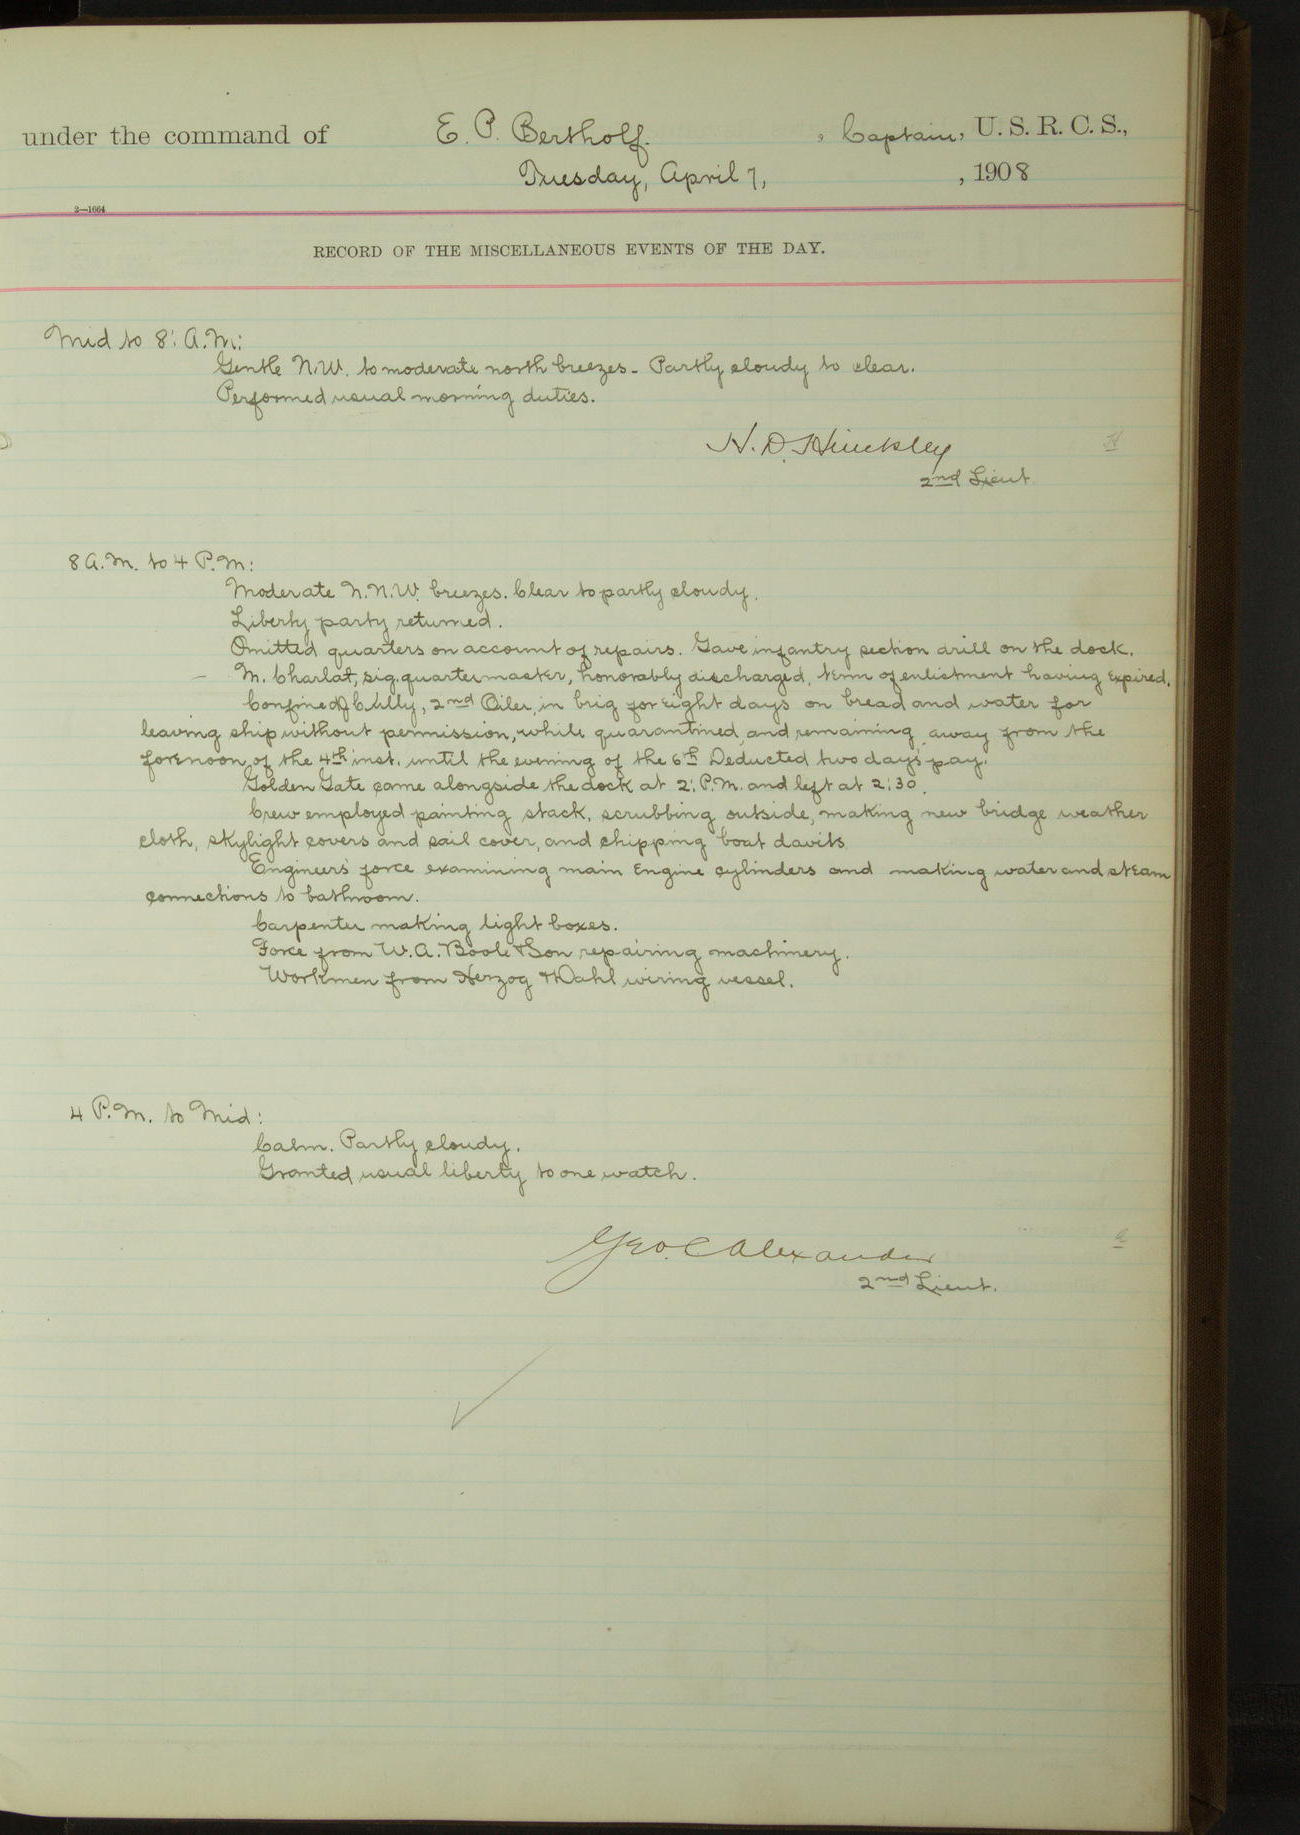 under the command of E. P. Bertholf. , Captain, U. S. R. C. S.,
Tuesday, April 7, , 1908
2—1664
RECORD OF THE MISCELLANEOUS EVENTS OF THE DAY.
Mid to 8: A.M:
Gentle N.W. to moderate north breezes - Partly cloudy to clear.
Performed usual morning duties.
H. D. Hinckley
2nd Lieut
8 A.M. to 4 P.M:
Moderate N.N.W. breezes. Clear to partly cloudy.
Liberty party returned.
Omitted quarters on account of repairs. Gave infantry section drill on the dock.
— M. Charlat, sig. quartermaster, honorably discharged, term of enlistment having expired.
Confined Cully, 2nd Oiler, in brig for eight days on bread and water for
leaving ship without permission, while quarantined, and remaining away from the
forenoon, of the 4th inst. until the evening of the 6th Deducted two days' pay.
Golden Gate came alongside the dock at 2: P.M. and left at 2:30.
Crew employed painting stack, scrubbing outside, making new bridge weather
cloth, skylight covers and sail cover, and chipping boat davits
Engineers' force examining main engine cylinders and making water and steam
connections to bathroom.
Carpenter making light boxes.
Force from W.A. Boole & Son repairing machinery.
Workmen from Herzog & Dahl wiring vessel.
4 P.M. to Mid:
Calm. Partly cloudy.
Granted usual liberty to one watch.
Geo. C Alexander
2nd Lieut.